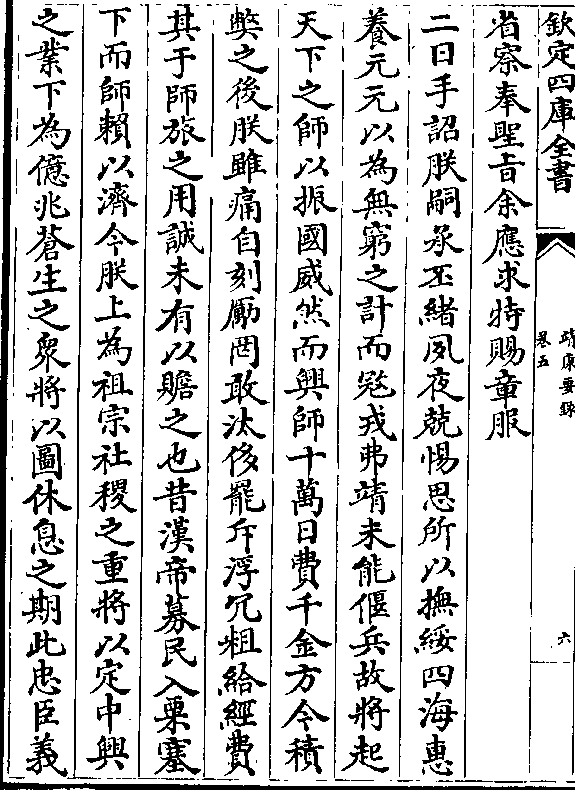 欽定四庫全書
靖康要錄
卷五
六
省察奉聖旨余應求特賜章服
二日手詔朕嗣承丕緒夙夜兢惕思所以撫綏四海惠
養元元以為無窮之計而愍戎弗靖未能偃兵故將起
天下之師以振國威然而興師十萬日費千金方今積
弊之後朕雖痛自刻勵罔敢汰侈罷斥浮冗粗給經費
其于師旅之用誠未有以贍之也昔漢帝募民入粟塞
下而師賴以濟今朕上為祖宗社稷之重將以定中興
之業下為億兆蒼生之衆將以圖休息之期此忠臣義